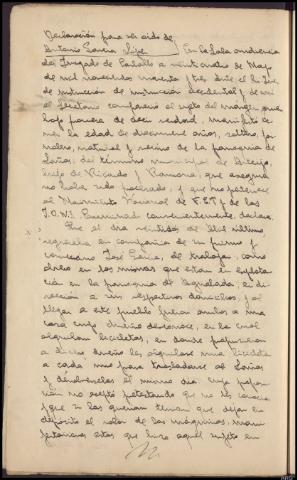 Declaración para el acido de
Antonio García Lage En la Sala audiencia
del Juzgado de Carballo a veinticuatro de Mayo
de mil novecientos cuarenta y tres ante el Sr Juez
de instrucción de instrucción accidental y de mi
el Secretario compareció el sujeto del margen que
bajo promesa de decir verdad, manifestó
mes la edad de diecinueve años, soltero, jor
nalero, natural y vecino de la parroquia de
del término municipal de
hijo de Ricardo y Ramona, que asegura
no haber sido procesado, y que no pertenece
al Movimiento Nacional de F.E.T y de las
J.O.N.S. Examinado convenientemente, declara:
Que el día veintidos de Abril último
regresaba en compañía de su primo y
convecino José García, de trabajar, como
obrero en las minas que están en explota
ción en la parroquia de Agualada, en di
rección a sus respectivos domicilios, y al
llegar a este pueblo fueron ambos a una
casa cuyo dueño desconoce, en la cual
alquilan bicicletas, en donde propusieron
a dicho dueño les alquilase una bicicleta
a cada uno para trasladarse al
y devolverselas el mismo día cuya
no aceptó pretextando que no les conocía
y que si las querían tenían que dejar en
depósito el valor de las máquinas, mani
festándoles estos que hizo aquel sujeto en